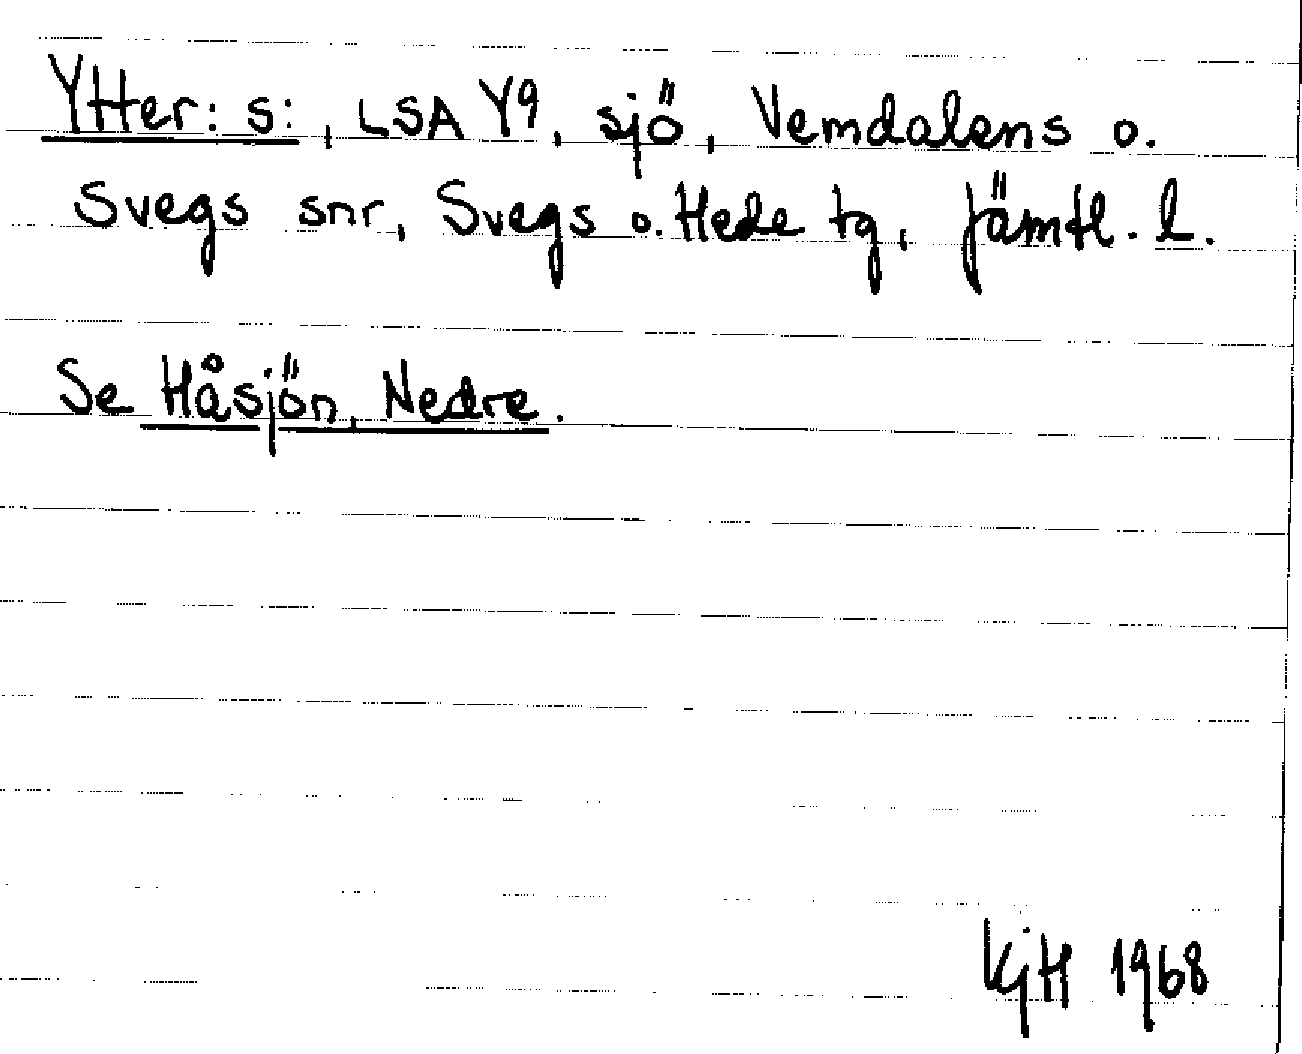 Ytter: s:, LSA Y9, sjö, Vemdalens o.
Svegs snr, Svegs o. Hede tg, Jämtl. l.
Se Håsjön, Nedre.
KjH 1968